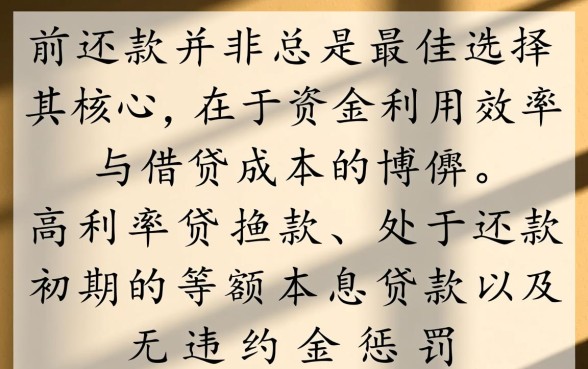 前还款并非总是最佳选择
其核心，在于资金利用效率
与借贷成本的博。
高利率贷款、处于还款
初期的等额本息贷款以及
无违约金惩罚